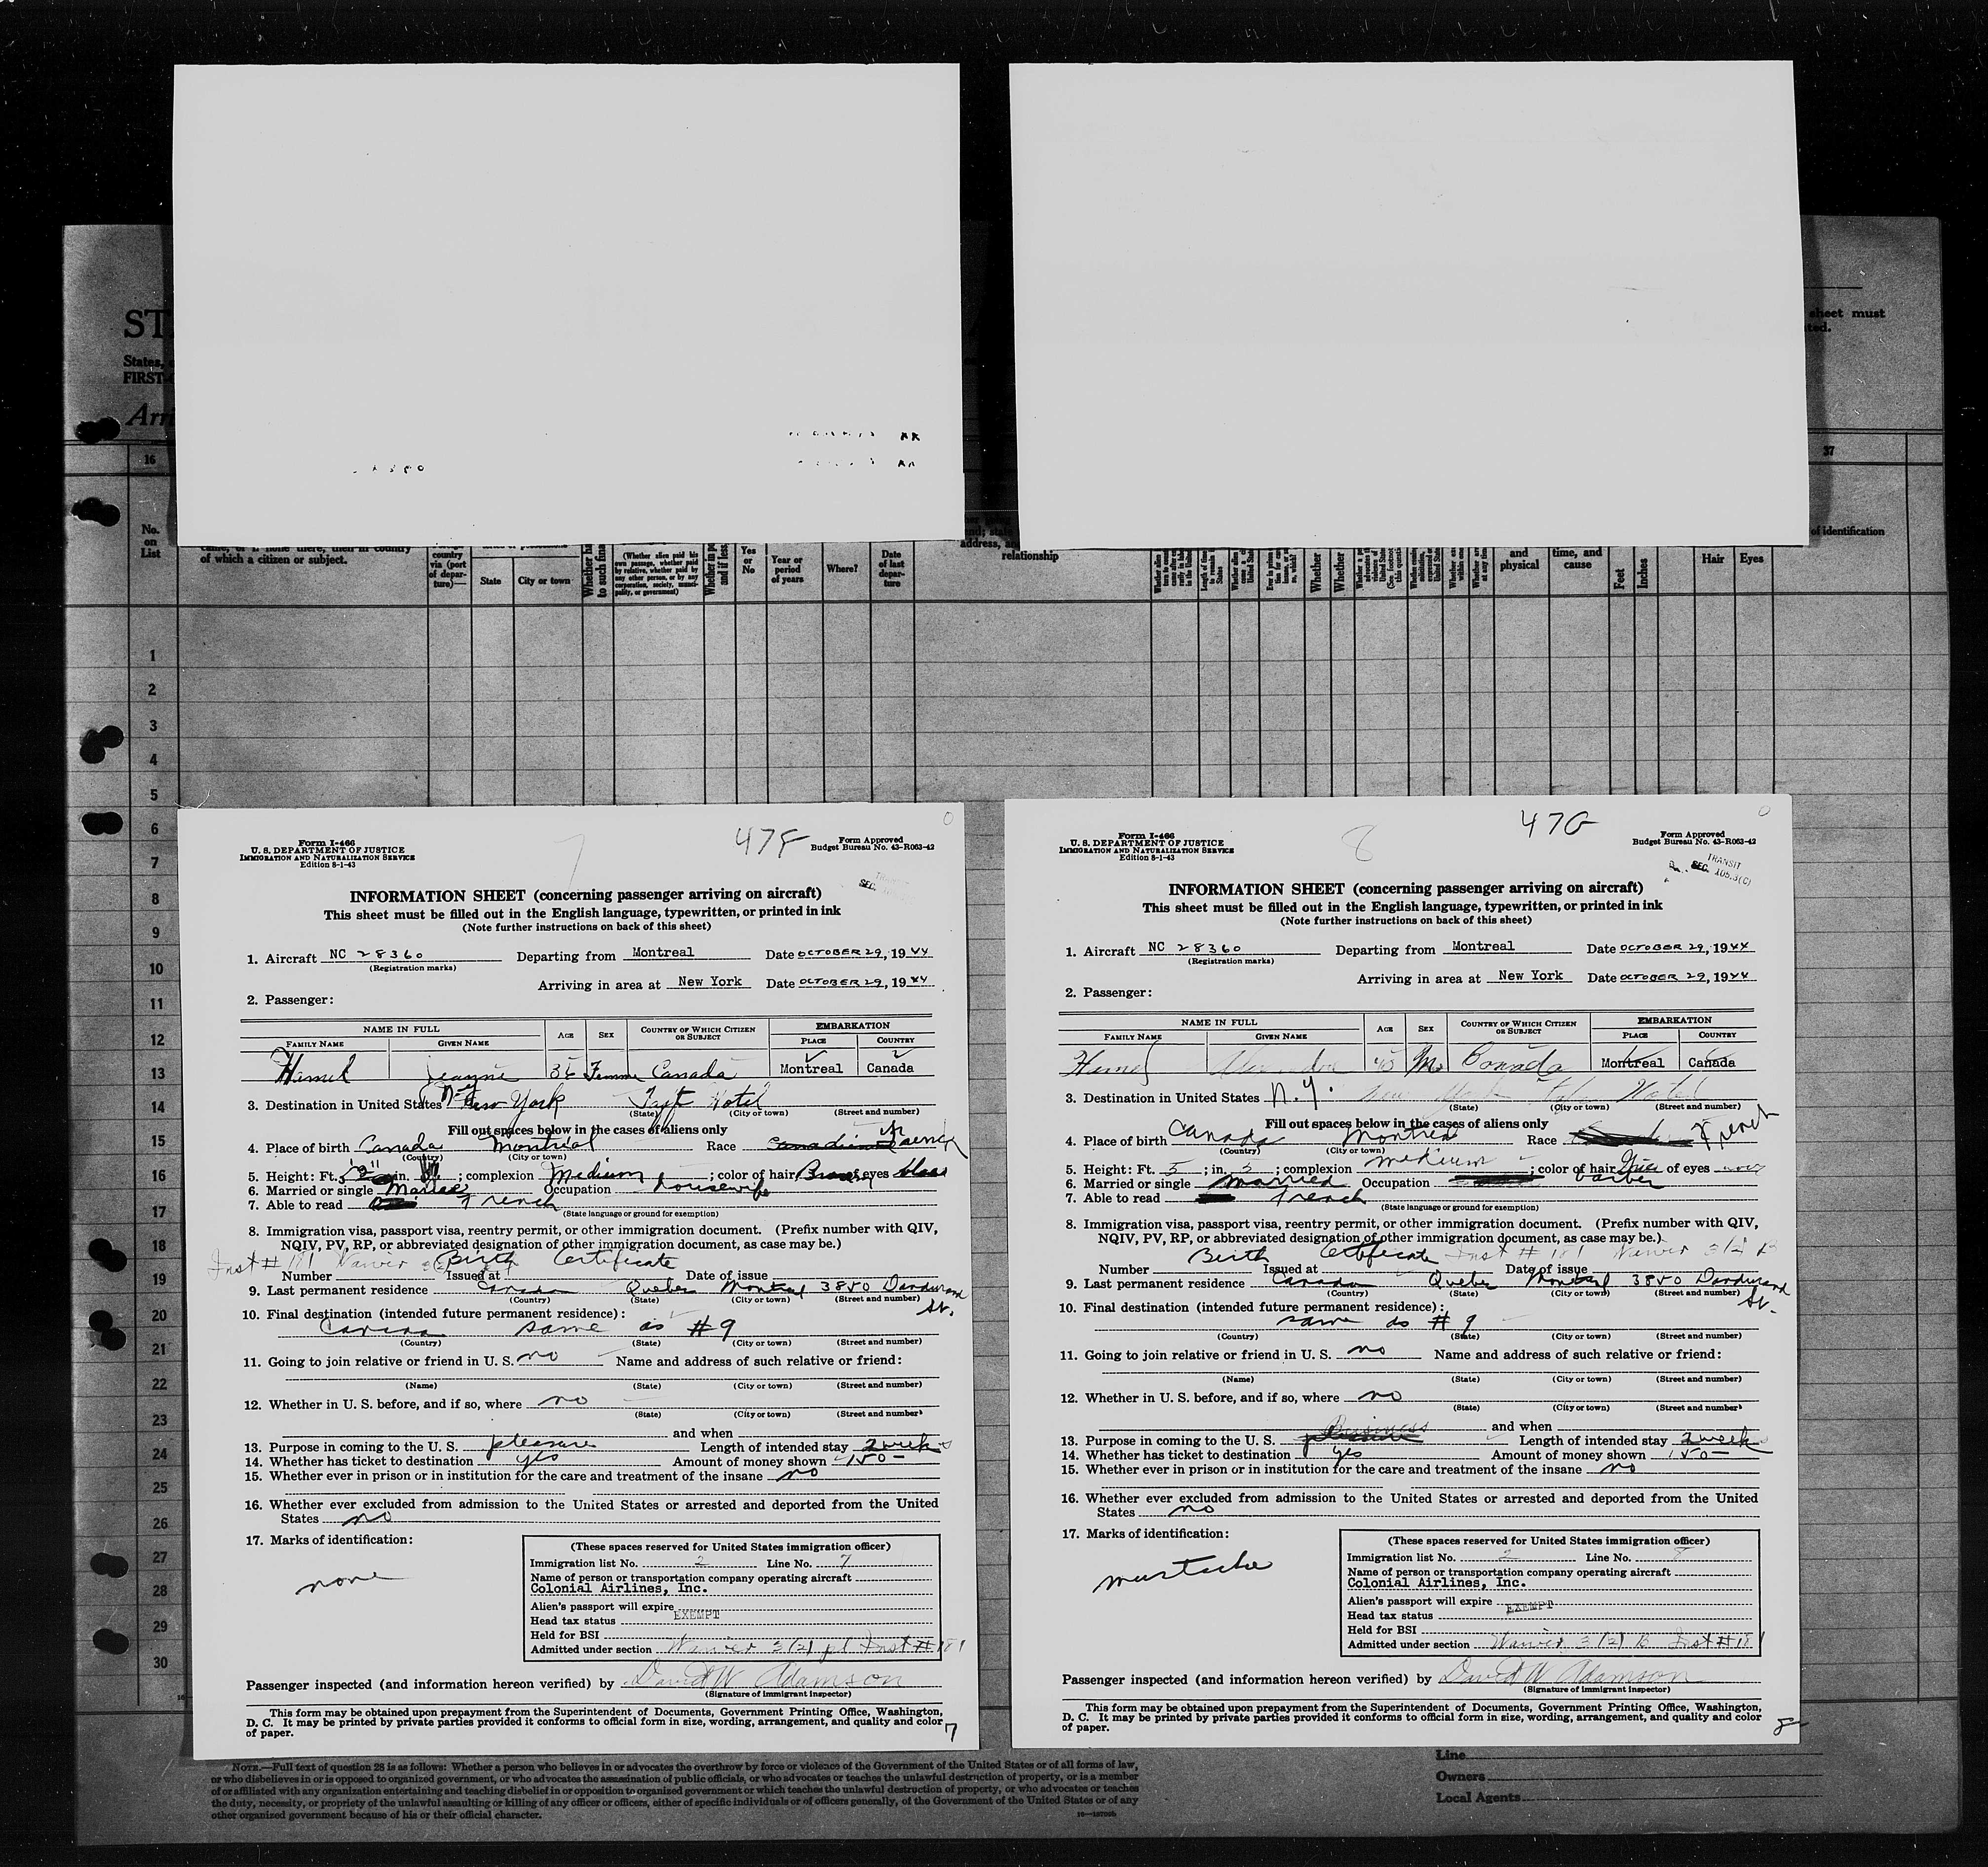 ST
States,
FIRST-
Arri
sheet must
ted.
16
37
No.
on
List
of which a citizen or subject.
country
via (port
of depar-
ture)—
State
City or town
Whether ha
to such fina
(Whether alien paid his
own passage, whether paid
by relative, whether paid by
any other person, or by any
corporation, society, munici-
pality, or government)
Whether in po
and if less
Yes
or
No
Year or
period
of years
Where?
Date
of last
depar-
ture
address, an
relationship
and
physical
time, and
cause
Feet
Inches
of identification
Hair
Eyes
1
2
3
4
5
6
7
8
9
10
11
12
13
14
15
16
17
18
19
20
21
22
23
24
25
26
27
28
29
30
7
47F
Form I-466
U. S. DEPARTMENT OF JUSTICE
IMMIGRATION AND NATURALIZATION SERVICE
Edition 8-1-43
Form Approved
Budget Bureau No. 43-R063-42
SEC.
INFORMATION SHEET (concerning passenger arriving on aircraft)
This sheet must be filled out in the English language, typewritten, or printed in ink
(Note further instructions on back of this sheet)
1. Aircraft NC 28360 Departing from Montreal Date OCTOBER 29, 1944
(Registration marks)
Arriving in area at New York Date OCTOBER 29, 1944
2. Passenger:
NAME IN FULL AGE SEX COUNTRY OF WHICH CITIZEN OR SUBJECT EMBARKATION
FAMILY NAME GIVEN NAME PLACE COUNTRY
Hamel Jeanne 36 Femme Canada Montreal Canada
3. Destination in United States New York Taft Hotel
(State) (City or town) (Street and number)
Fill out spaces below in the cases of aliens only
4. Place of birth Canada Montreal Race French
(Country) (City or town)
5. Height: Ft. in. ; complexion Medium ; color of hair Brown eyes blue
6. Married or single Married Occupation housewife
7. Able to read French
(State language or ground for exemption)
8. Immigration visa, passport visa, reentry permit, or other immigration document. (Prefix number with QIV,
NQIV, PV, RP, or abbreviated designation of other immigration document, as case may be.)
Inst # 181 Waiver Birth Certificate
Number Issued at Date of issue
9. Last permanent residence Canada Quebec Montreal 3850 Dandurand St.
(Country) (State) (City or town) (Street and number)
10. Final destination (intended future permanent residence):
Canada same as #9
(Country) (State) (City or town) (Street and number)
11. Going to join relative or friend in U. S. no Name and address of such relative or friend:
(Name) (State) (City or town) (Street and number)
12. Whether in U. S. before, and if so, where no
(State) (City or town) (Street and number)
and when
13. Purpose in coming to the U. S. pleasure Length of intended stay 2 weeks
14. Whether has ticket to destination yes Amount of money shown 150-
15. Whether ever in prison or in institution for the care and treatment of the insane no
16. Whether ever excluded from admission to the United States or arrested and deported from the United
States no
17. Marks of identification:
none
(These spaces reserved for United States immigration officer)
Immigration list No. 2 Line No. 7
Name of person or transportation company operating aircraft
Colonial Airlines, Inc.
Alien's passport will expire
Head tax status EXEMPT
Held for BSI
Admitted under section Waiver 3(2) Inst # 181
Passenger inspected (and information hereon verified) by David W Adamson
(Signature of immigrant inspector)
This form may be obtained upon prepayment from the Superintendent of Documents, Government Printing Office, Washington,
D. C. It may be printed by private parties provided it conforms to official form in size, wording, arrangement, and quality and color
of paper.
7
8
47G
Form I-466
U. S. DEPARTMENT OF JUSTICE
IMMIGRATION AND NATURALIZATION SERVICE
Edition 8-1-43
Form Approved
Budget Bureau No. 43-R063-42
TRANSIT
SEC. 105.3(C)
INFORMATION SHEET (concerning passenger arriving on aircraft)
This sheet must be filled out in the English language, typewritten, or printed in ink
(Note further instructions on back of this sheet)
1. Aircraft NC 28360 Departing from Montreal Date OCTOBER 29, 1944
(Registration marks)
Arriving in area at New York Date OCTOBER 29, 1944
2. Passenger:
NAME IN FULL AGE SEX COUNTRY OF WHICH CITIZEN OR SUBJECT EMBARKATION
FAMILY NAME GIVEN NAME PLACE COUNTRY
Hamel 45 M. Canada Montreal Canada
3. Destination in United States N.Y. New York Hotel
(State) (City or town) (Street and number)
Fill out spaces below in the cases of aliens only
4. Place of birth Canada Montreal Race French
(Country) (City or town)
5. Height: Ft. 5 ; in. 5 ; complexion medium ; color of hair of eyes
6. Married or single married Occupation barber
7. Able to read French
(State language or ground for exemption)
8. Immigration visa, passport visa, reentry permit, or other immigration document. (Prefix number with QIV,
NQIV, PV, RP, or abbreviated designation of other immigration document, as case may be.)
Birth Certificate Inst # 181 Waiver 3(2) B
Number Issued at Date of issue
9. Last permanent residence Canada Quebec Montreal 3850 Dandurand St.
(Country) (State) (City or town) (Street and number)
10. Final destination (intended future permanent residence):
same as #9
(Country) (State) (City or town) (Street and number)
11. Going to join relative or friend in U. S. no Name and address of such relative or friend:
(Name) (State) (City or town) (Street and number)
12. Whether in U. S. before, and if so, where no
(State) (City or town) (Street and number)
and when
13. Purpose in coming to the U. S. Business Length of intended stay 2 weeks
14. Whether has ticket to destination yes Amount of money shown 150-
15. Whether ever in prison or in institution for the care and treatment of the insane no
16. Whether ever excluded from admission to the United States or arrested and deported from the United
States no
17. Marks of identification:
mustache
(These spaces reserved for United States immigration officer)
Immigration list No. 2 Line No. 8
Name of person or transportation company operating aircraft
Colonial Airlines, Inc.
Alien's passport will expire
Head tax status EXEMPT
Held for BSI
Admitted under section Waiver 3(2) B Inst # 181
Passenger inspected (and information hereon verified) by David W Adamson
(Signature of immigrant inspector)
This form may be obtained upon prepayment from the Superintendent of Documents, Government Printing Office, Washington,
D. C. It may be printed by private parties provided it conforms to official form in size, wording, arrangement, and quality and color
of paper.
8
NOTE.—Full text of question 28 is as follows: Whether a person who believes in or advocates the overthrow by force or violence of the Government of the United States or of all forms of law,
or who disbelieves in or is opposed to organized government, or who advocates the assassination of public officials, or who advocates or teaches the unlawful destruction of property, or is a member
of or affiliated with any organization entertaining and teaching disbelief in or opposition to organized government or which teaches the unlawful destruction of property, or who advocates or teaches
the duty, necessity, or propriety of the unlawful assaulting or killing of any officer or officers, either of specific individuals or of officers generally, of the Government of the United States or of any
other organized government because of his or their official character.
Line
Owners
Local Agents